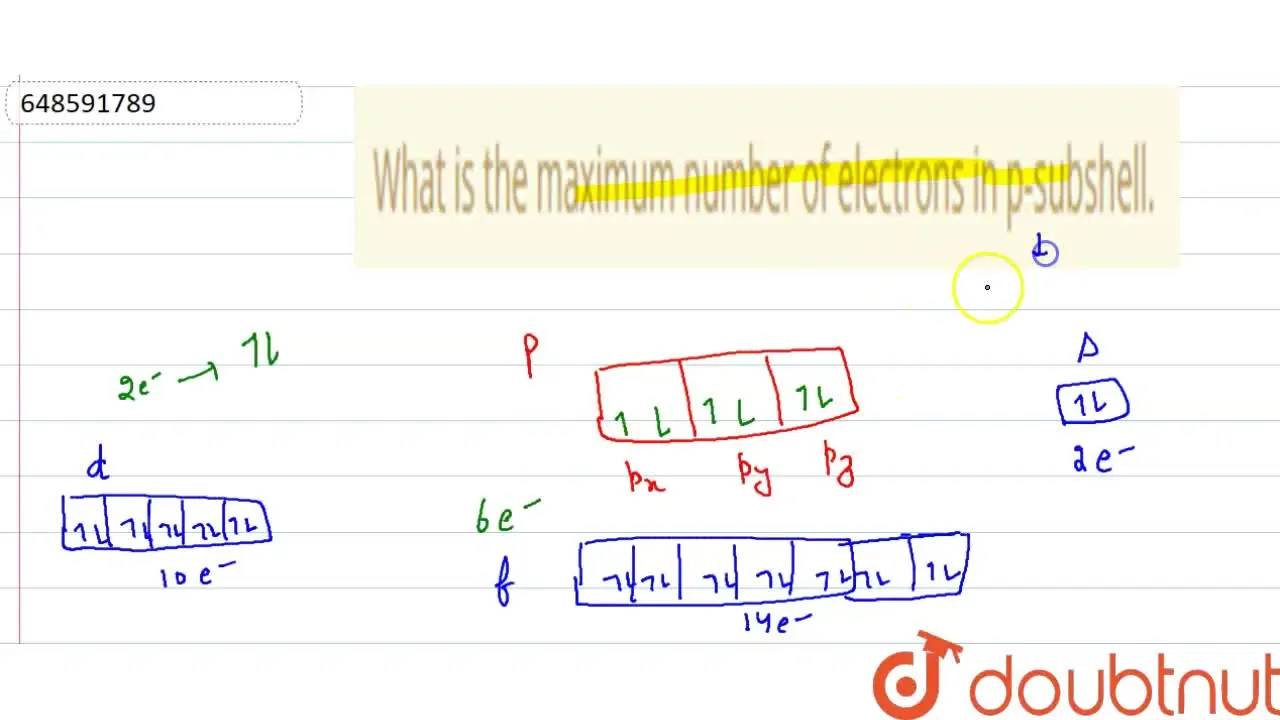 648591789
What is the maximum number of electrons in p-subshell.
2e⁻ → 1L
p
s
1L 1L 1L
1L
px py pz
2e⁻
d
1L 1L 1L 1L 1L
6e⁻
10e⁻
f
1L 1L 1L 1L 1L 1L 1L
14e⁻
doubtnut